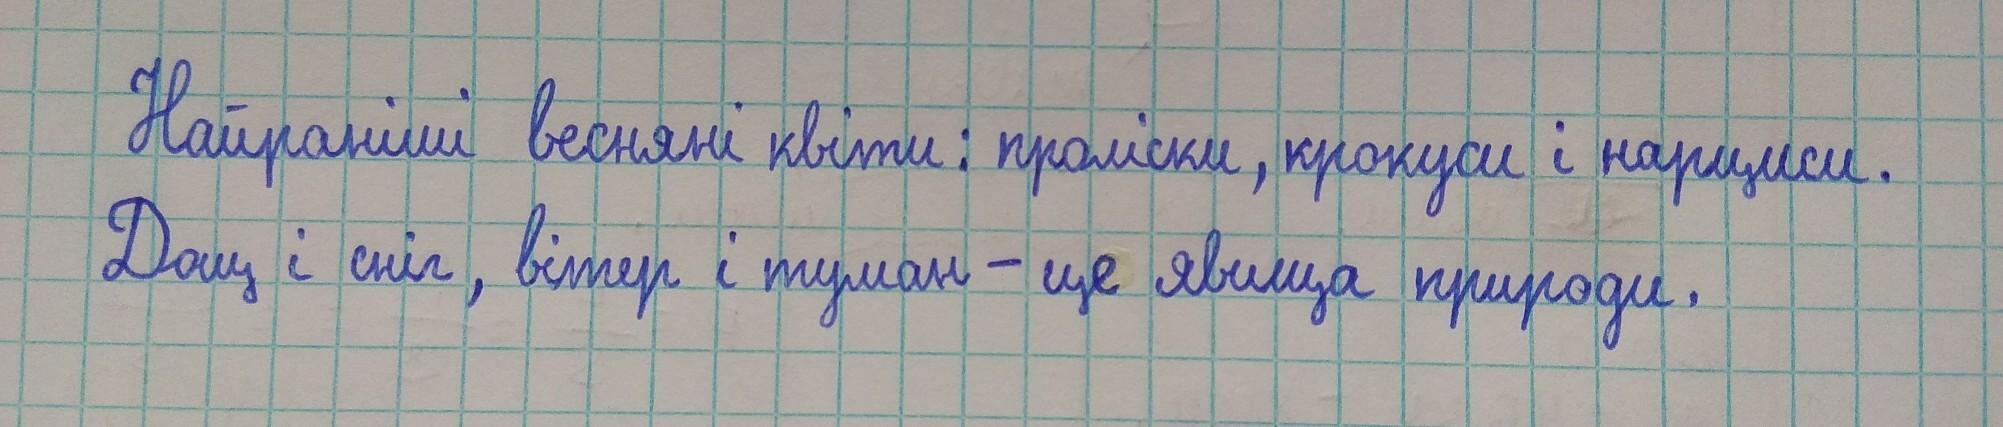 Найраніші весняні квіти: проліски, крокуси і нарциси.
Дощ і сніг, вітер і туман - це явища природи.